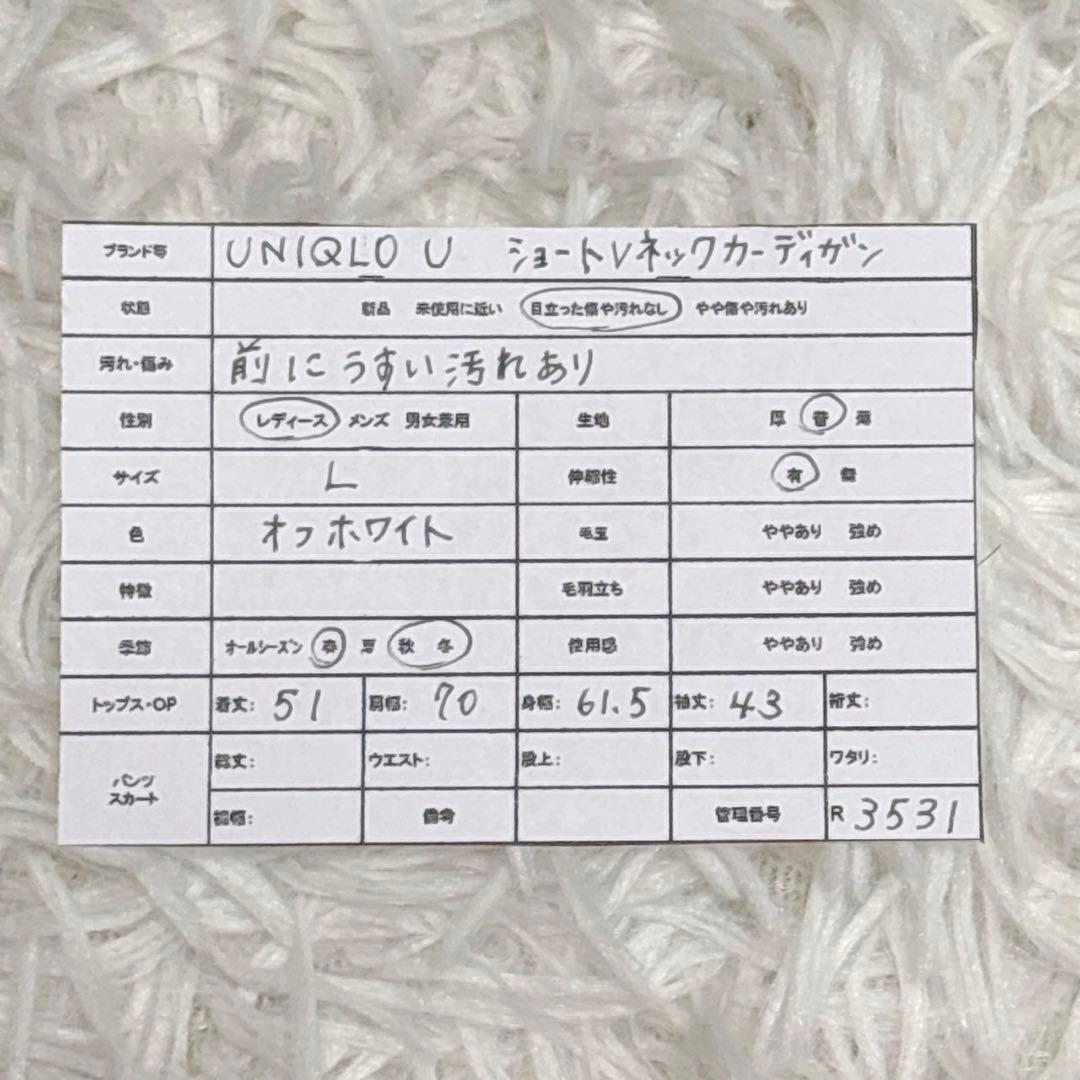 ブランド名 UNIQLO U ショートVネックカーディガン
状態 新品 未使用に近い 目立った傷や汚れなし やや傷や汚れあり
汚れ・傷み 前にうすい汚れあり
性別 レディース メンズ 男女兼用 生地 厚 普 薄
サイズ L 伸縮性 有 無
色 オフホワイト 毛玉 ややあり 強め
特徴 毛羽立ち ややあり 強め
季節 オールシーズン 春 夏 秋 冬 使用感 ややあり 強め
トップス・OP 着丈: 51 肩幅: 70 身幅: 61.5 袖丈: 43 裄丈:
パンツ スカート 総丈: ウエスト: 股上: 股下: ワタリ:
裾幅: 備考 管理番号 R 3531